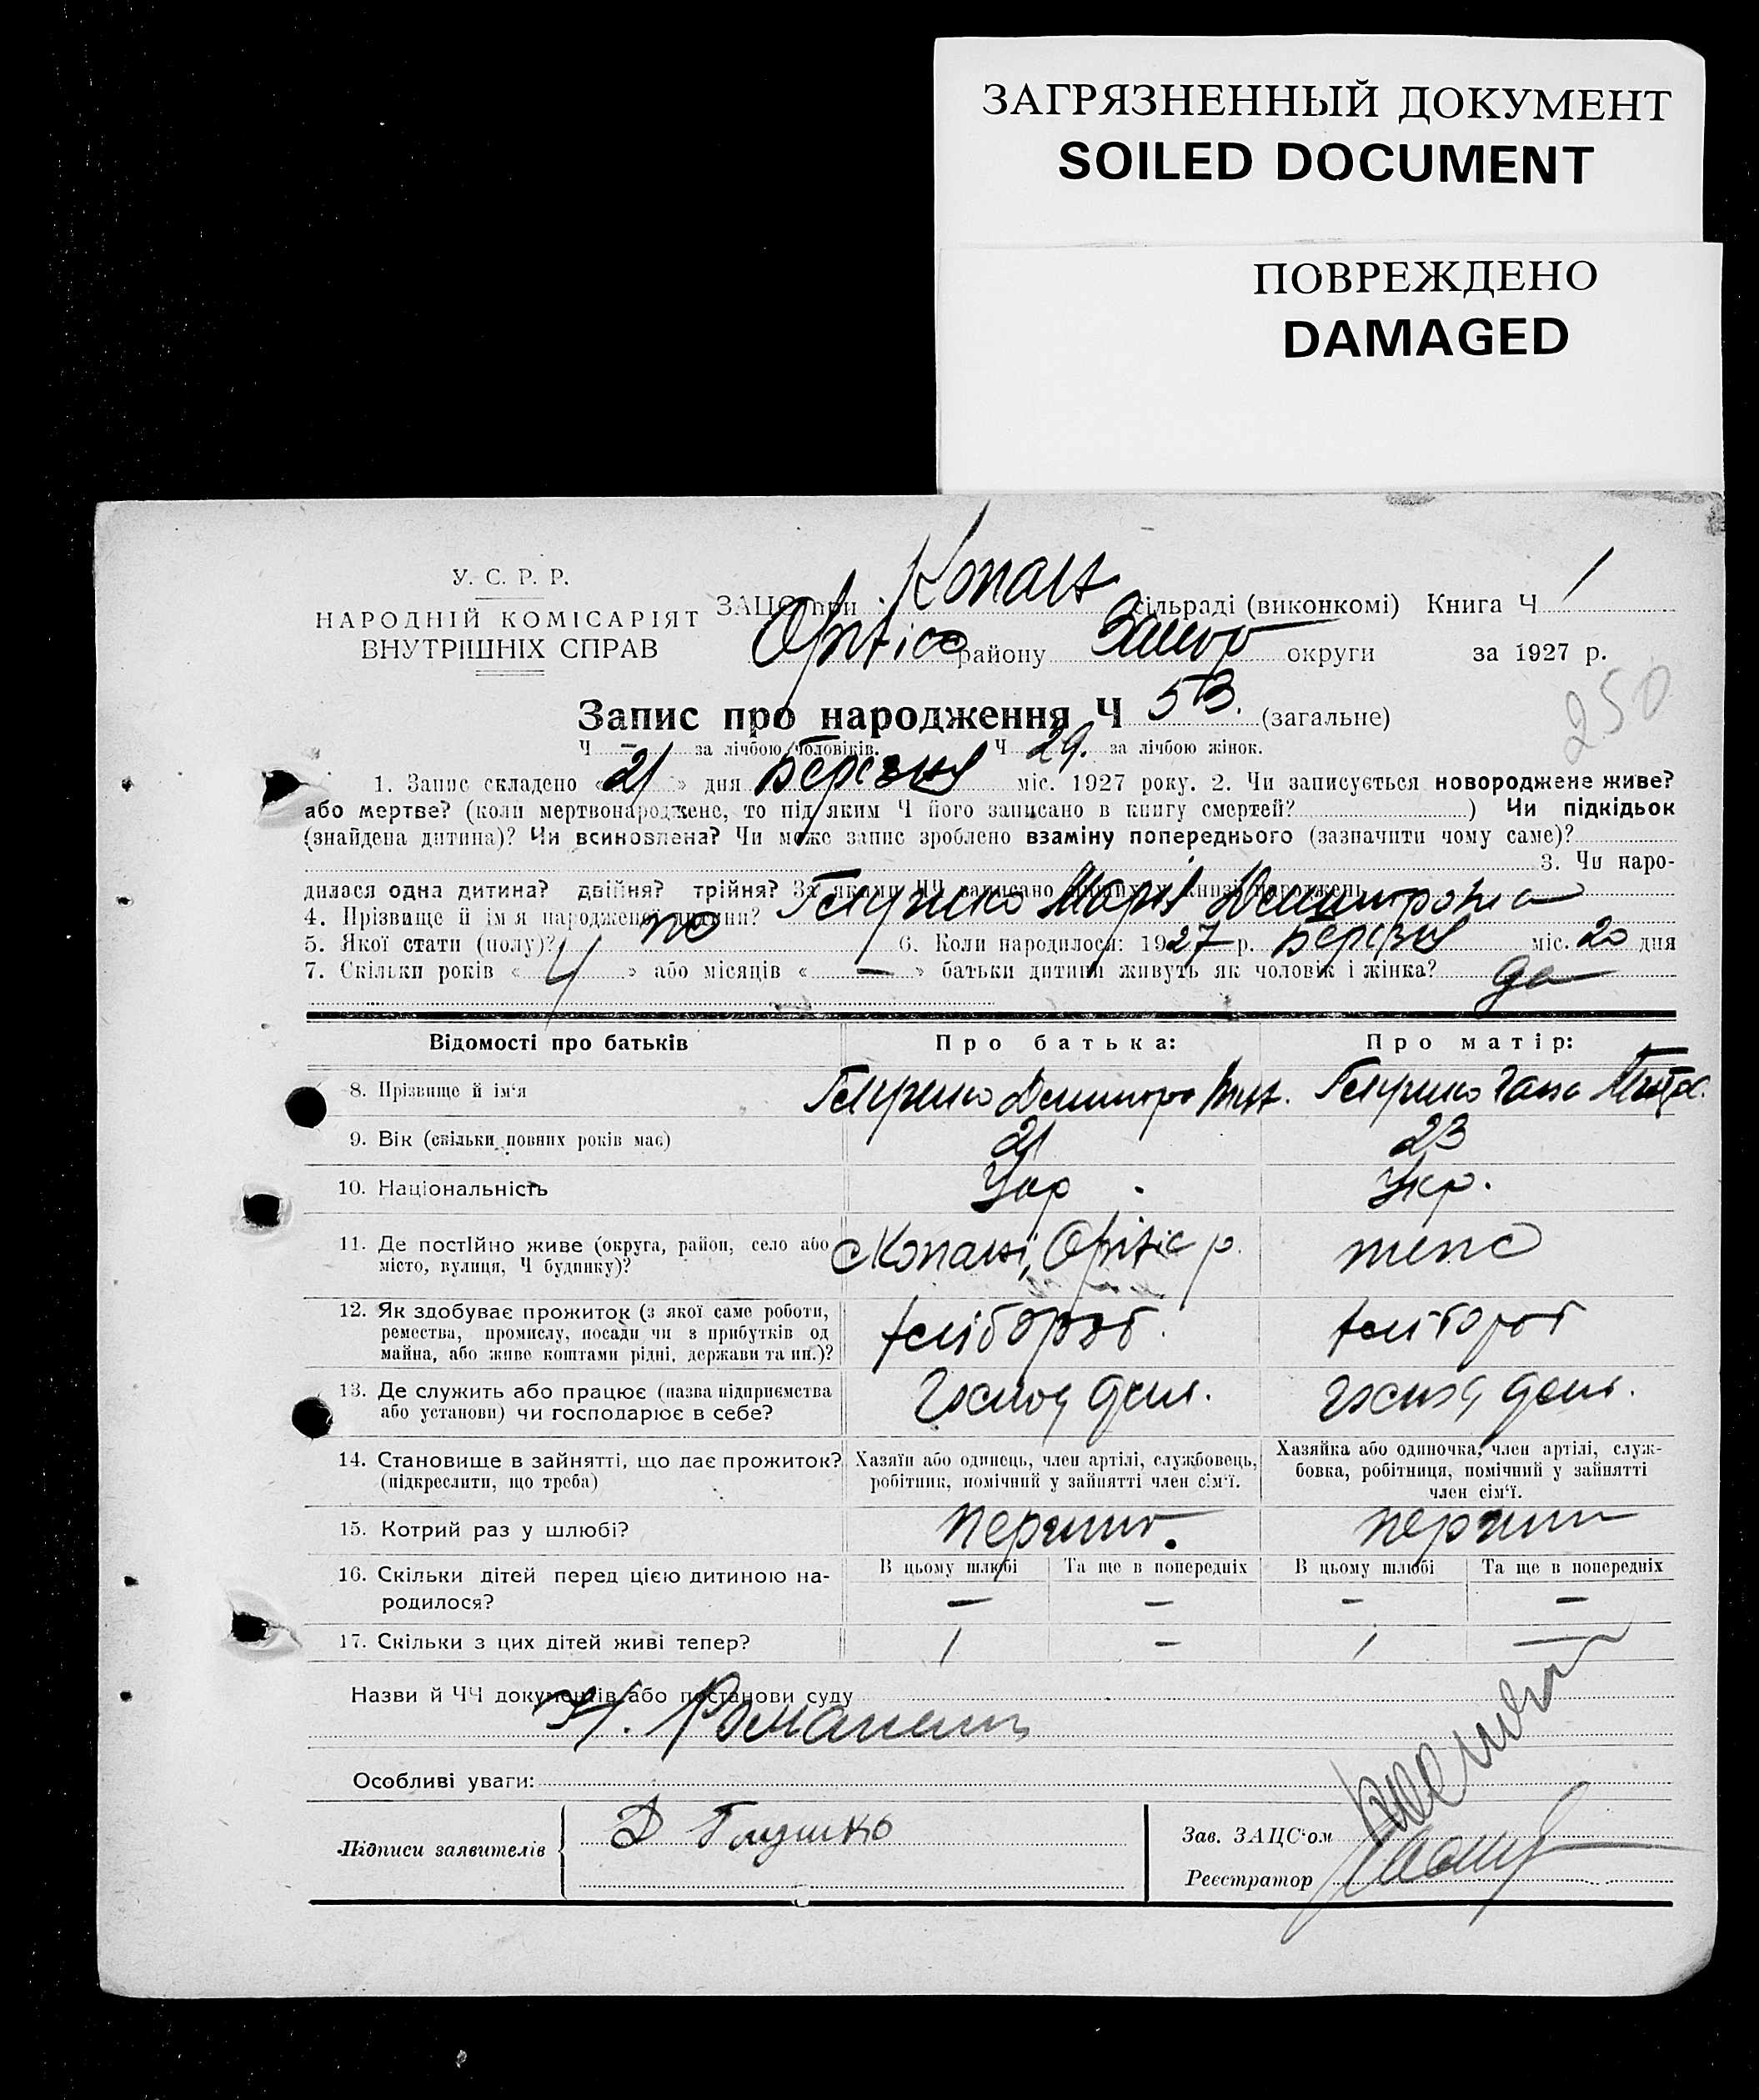 ЗАГРЯЗНЕННЫЙ ДОКУМЕНТ
SOILED DOCUMENT
ПОВРЕЖДЕНО
DAMAGED
У. С. Р. Р.
НАРОДНІЙ КОМІСАРІЯТ
ВНУТРІШНІХ СПРАВ
ЗАЦС при Копан сільраді (виконкомі) Книга Ч 1
Оріхіс району Запор округи за 1927 р.
250
Запис про народження Ч 53. (загальне)
Ч — за лічбою чоловіків. Ч 29. за лічбою жінок.
1. Запис складено «21» дня Березня міс. 1927 року. 2. Чи записується новороджене живе?
або мертве? (коли мертвонароджене, то під яким Ч його записано в книгу смертей? ) Чи підкідьок
(знайдена дитина)? Чи всиновлена? Чи може запис зроблено взаміну попереднього (зазначити чому саме)?
3. Чи наро-
дилася одна дитина? двійня? трійня? За якими ЧЧ записано інших у книзі народжень
4. Прізвище й ім'я народженої дитини? Галушко Марія Дмитровна
5. Якої стати (полу)? 6. Коли народилося: 1927 р. Березня міс. 20 дня
7. Скільки років « » або місяців « — » батьки дитини живуть як чоловік і жінка? да
Відомості про батьків Про батька: Про матір:
8. Прізвище й ім'я Галушко Галушко Ганна
9. Вік (скільки повних років має) 21 23
10. Національність Укр. Укр.
11. Де постійно живе (округа, район, село або
місто, вулиця, Ч будинку)? с Копані, Оріхіс р. тепс
12. Як здобуває прожиток (з якої саме роботи,
ремества, промислу, посади чи з прибутків од
майна, або живе коштами рідні, держави та ин.)? хлібороб. хлібороб
13. Де служить або працює (назва підприємства
або установи) чи господарює в себе?
14. Становище в зайнятті, що дає прожиток?
(підкреслити, що треба)
Хазяїн або одинець, член артілі, службовець,
робітник, помічний у зайнятті член сім'ї.
Хазяйка або одиночка, член артілі, служ-
бовка, робітниця, помічний у зайнятті
член сім'ї.
15. Котрий раз у шлюбі?
16. Скільки дітей перед цією дитиною на-
родилося?
В цьому шлюбі Та ще в попередніх В цьому шлюбі Та ще в попередніх
— — — —
17. Скільки з цих дітей живі тепер? 1 — 1 —
Назви й ЧЧ документів або постанови суду
Особливі уваги:
Підписи заявителів Д Галушко
Зав. ЗАЦС'ом
Реєстратор